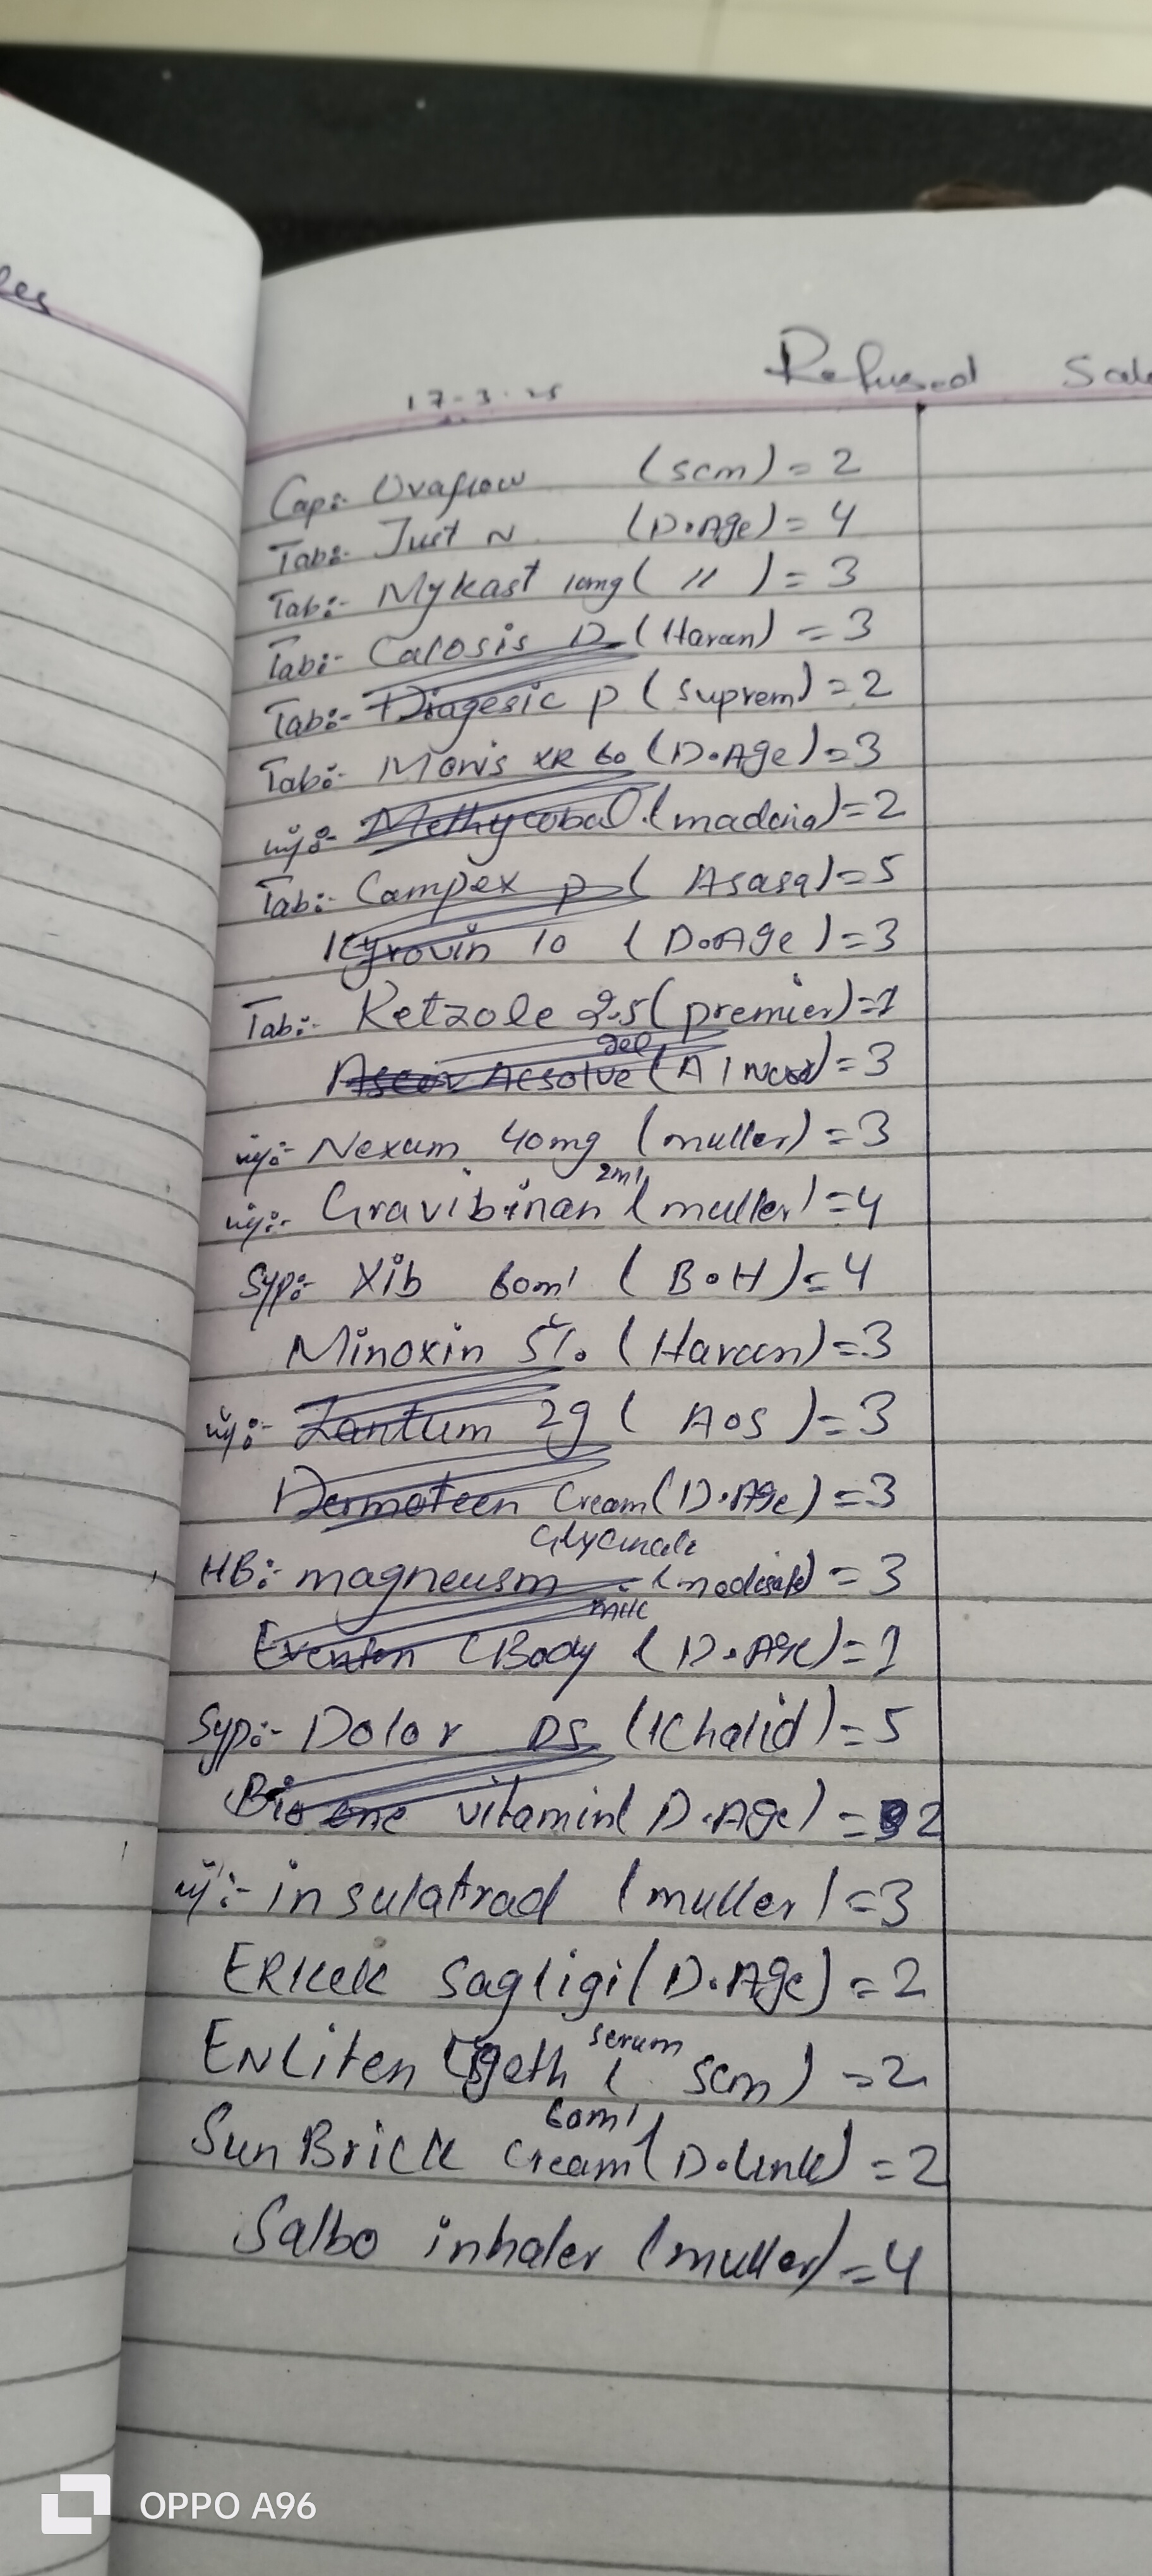 les
Refused Sale
17-3-25
Cap:- Uvaflow (scm) = 2
Tab:- Just N (D.Age) = 4
Tab:- Mykast 10mg ( " ) = 3
Tab:- Calosis D (Haroon) = 3
Tab:- Diagesic p (suprem) = 2
Tab:- Monis XR 60 (D.Age) = 3
inj:- Methycobal (madina) = 2
Tab:- Campex p ( Asasa) = 5
Kyrovin 10 ( D.Age ) = 3
Tab:- Ketzole 2.5 (premier) = 1
Acsolve gel = 3
inj:- Nexum 40mg (muller) = 3
inj:- Gravibinan 2ml (muller) = 4
Syp:- Xib 60ml ( B.H ) = 4
Minoxin 5% (Haroon) = 3
inj:- Zantum 2g ( AOS ) = 3
Dermoteen Cream (D.Age) = 3
HB:- magneusm Glycinate = 3
Eventon C Body (D.Age) = 1
Syp:- Dolor DS (Khalid) = 5
Bio one vitamin( D.Age) = 2
inj:- insulatrad (muller) = 3
ERKeK Sagligi (D.Age) = 2
ENLiten serum ( scm ) = 2
Sun Brick Cream 60ml (D.Link) = 2
Salbo inhaler (muller) = 4
OPPO A96